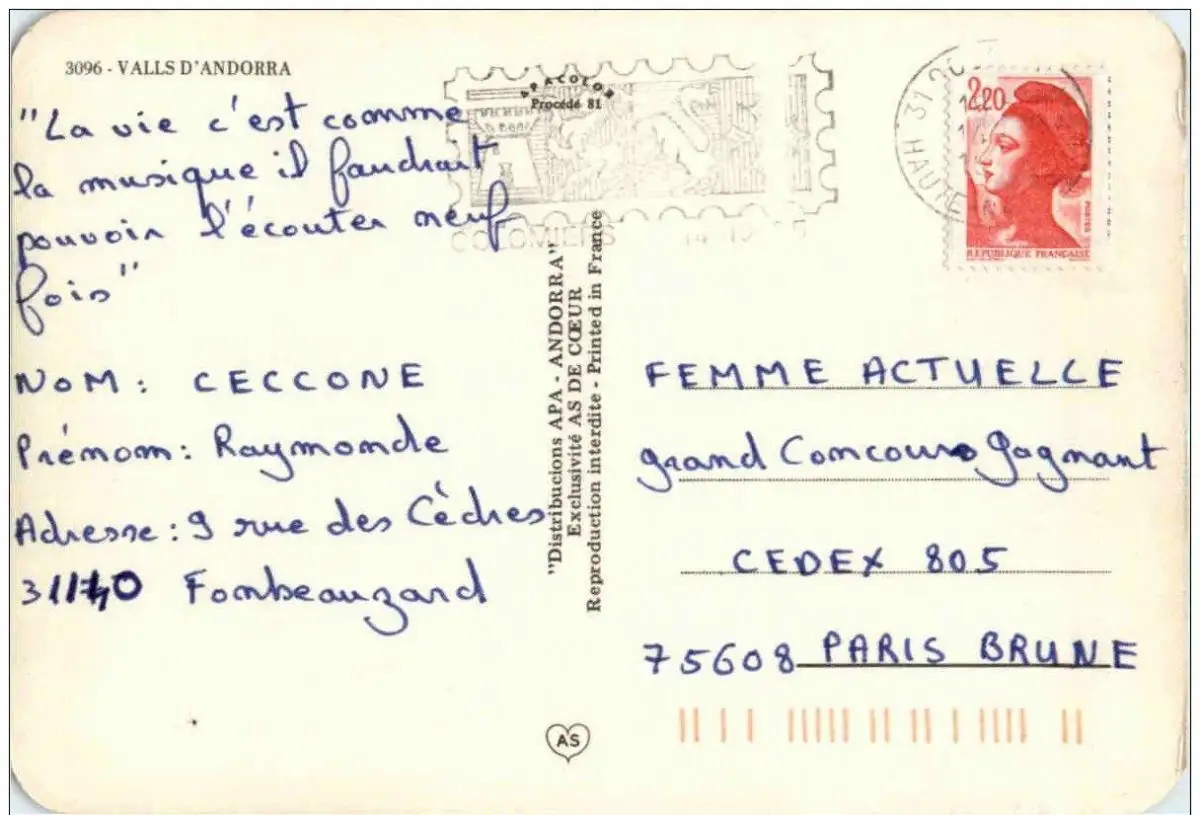 3096 - VALLS D'ANDORRA
"La vie c'est comme
la musique il faudrait
pouvoir l'écouter neuf
fois"
NOM: CECCONE
Prénom: Raymonde
Adresse: 9 rue des Cèdres
31140 Fonbeauzard
Procédé 81
COLOMIERS
"Distribucions APA - ANDORRA"
Exclusivité AS DE CŒUR
Reproduction interdite - Printed in France
AS
31
HAUTE
2,20
POSTES
REPUBLIQUE FRANÇAISE
FEMME ACTUELLE
grand Concours Gagnant
CEDEX 805
75608 PARIS BRUNE